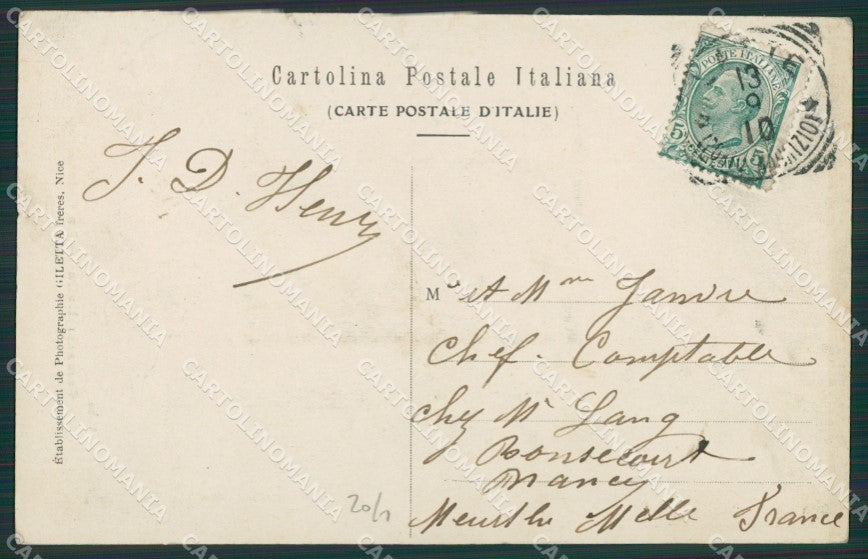 Cartolina Postale Italiana
(CARTE POSTALE D'ITALIE)
POSTE ITALIANE
5 5
13
9
10
J. D. Henry
Établissement de Photographie GILETTA frères, Nice
Mr et Mme Janvre
Chef. Comptable
chez Mr Lang
Bonsecourt
Nancy
Meurthe Melle France
20/1
CARTOLINOMANIA